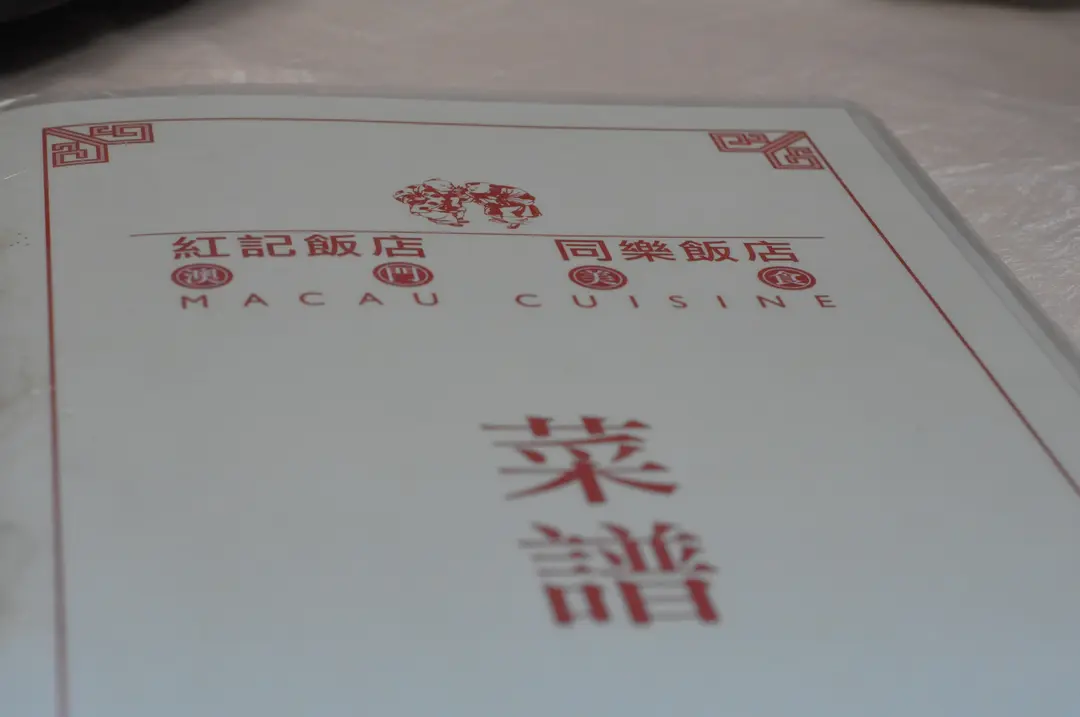 紅記飯店 同樂飯店
澳門美食
MACAU CUISINE
菜
譜